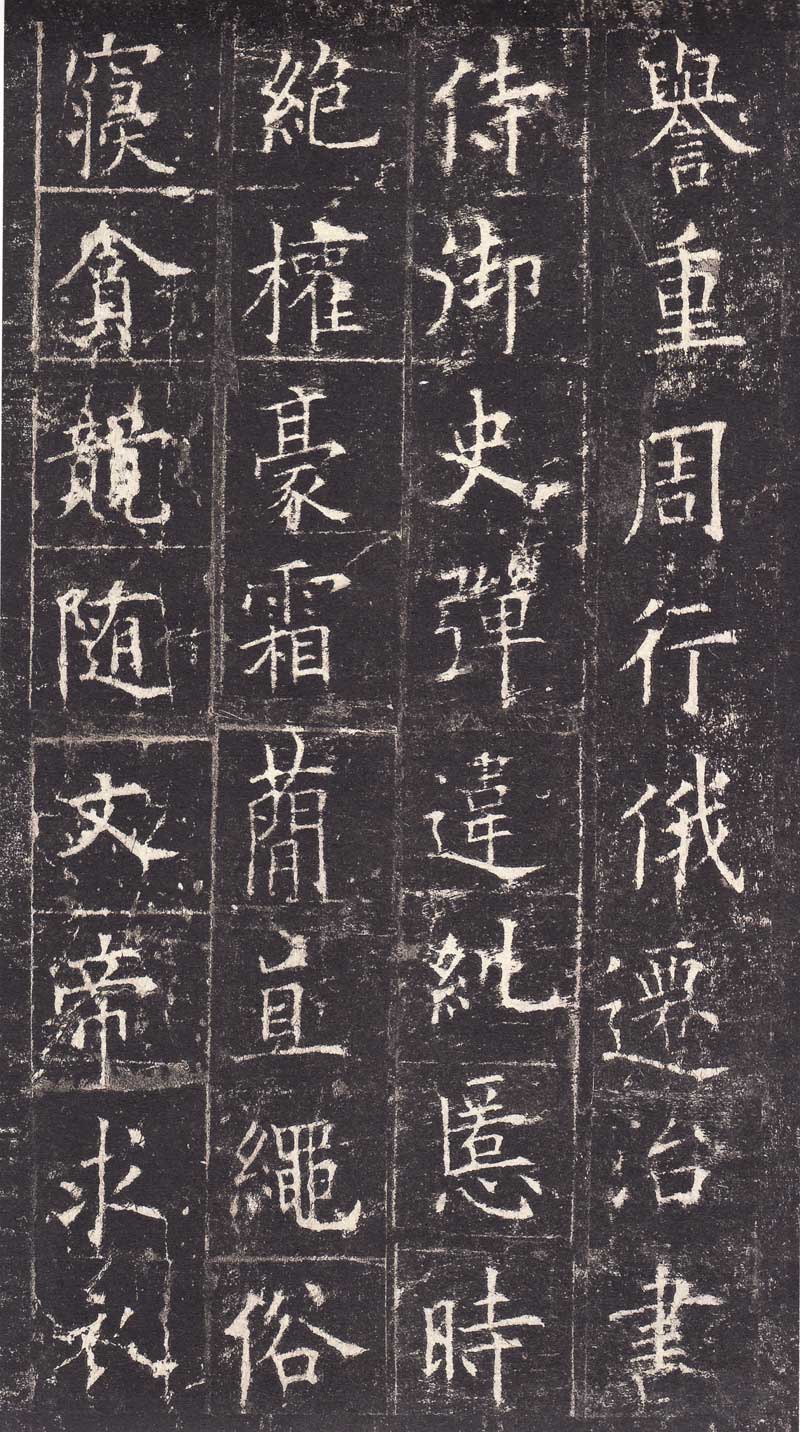 譽重周行俄遷治書
侍御史彈違糺慝時
絶權豪霜蕳直繩俗
寢貪競随文帝求衣